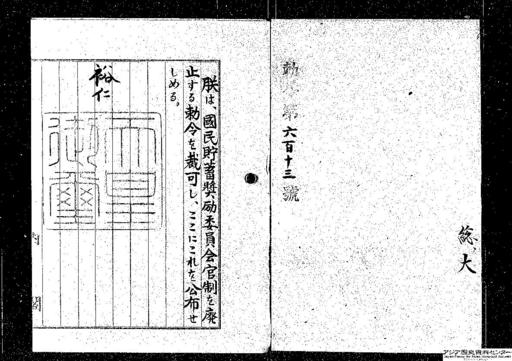 総、大
勅令第六百十三號
朕は、國民貯蓄奬励委員会官制を廃
止する勅令を裁可し、ここにこれを公布せ
しめる。
裕仁
天皇
御璽
内閣
アジア歴史資料センター